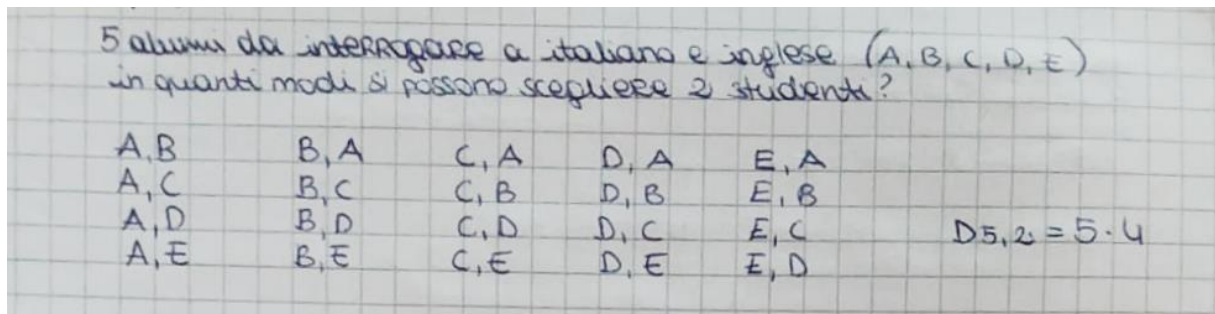 5 alunni da interrogare a italiano e inglese (A, B, C, D, E)
in quanti modi si possono scegliere 2 studenti?
A,B B,A C,A D,A E,A
A,C B,C C,B D,B E,B
A,D B,D C,D D,C E,C D5,2 = 5·4
A,E B,E C,E D,E E,D